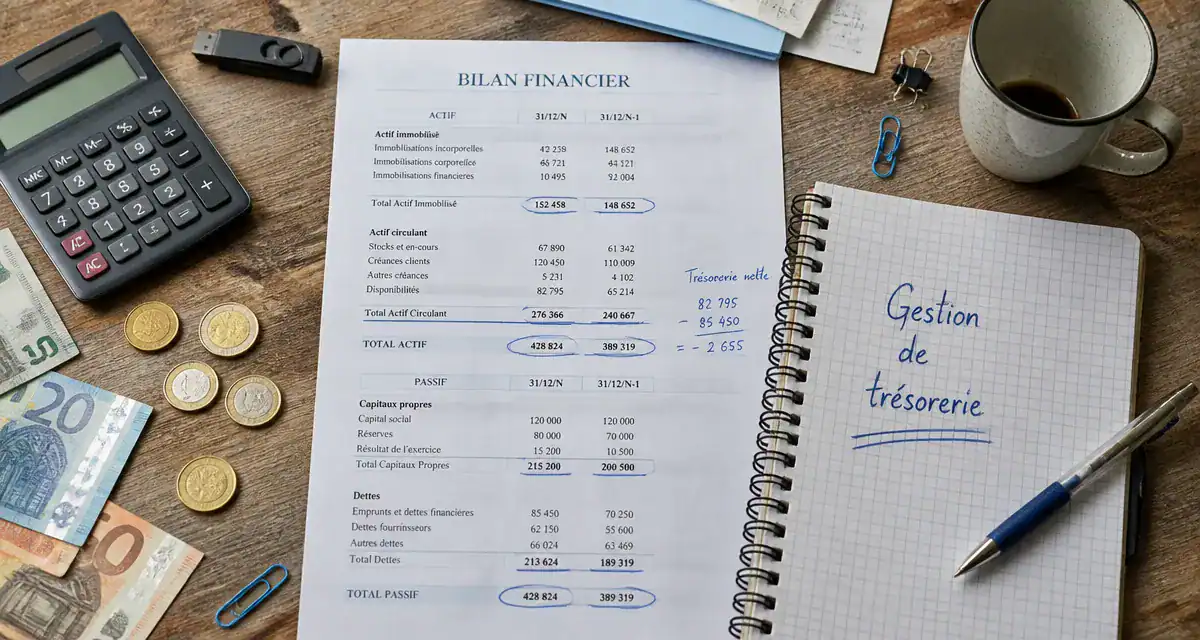 BILAN FINANCIER
ACTIF 31/12/N 31/12/N-1
Actif immobilisé
Immobilisations incorporelles 42 258 148 652
Immobilisations corporelles 66 721 44 121
Immobilisations financieres 10 495 92 004
Total Actif Immobilisé 152 458 148 652
Actif circulant
Stocks et en-cours 67 890 61 342
Créances clients 120 450 110 009
Autres créances 5 231 4 102
Disponibilités 82 795 65 214
Total Actif Circulant 276 366 240 667
TOTAL ACTIF 428 824 389 319
PASSIF 31/12/N 31/12/N-1
Capitaux propres
Capital social 120 000 120 000
Réserves 80 000 70 000
Résultat de l'exercice 15 200 10 500
Total Capitaux Propres 215 200 200 500
Dettes
Emprunts et dettes financières 85 450 70 250
Dettes fournisseurs 62 150 55 600
Autres dettes 66 024 63 469
Total Dettes 213 624 189 319
TOTAL PASSIF 428 824 389 319
Trésorerie nette
82 795
- 85 450
= - 2 655
Gestion
de
trésorerie
5
20
50
MRC M- M- % +
7 8 9 5 −
4 8 8 2 +
AC 1 2 =
AC